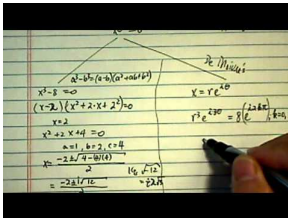 a³-b³=(a-b)(a²+ab+b²)
x³-8=0
(x-2)(x²+2·x+2²)=0
x=2
x²+2x+4=0
a=1, b=2, c=4
x= -2±√4-4(1)(4) / 2
= -2±√-12 / 2
√-12
De Moivre's
x=re^iθ
r³e^i3θ = 8e^(2πki), k=0,